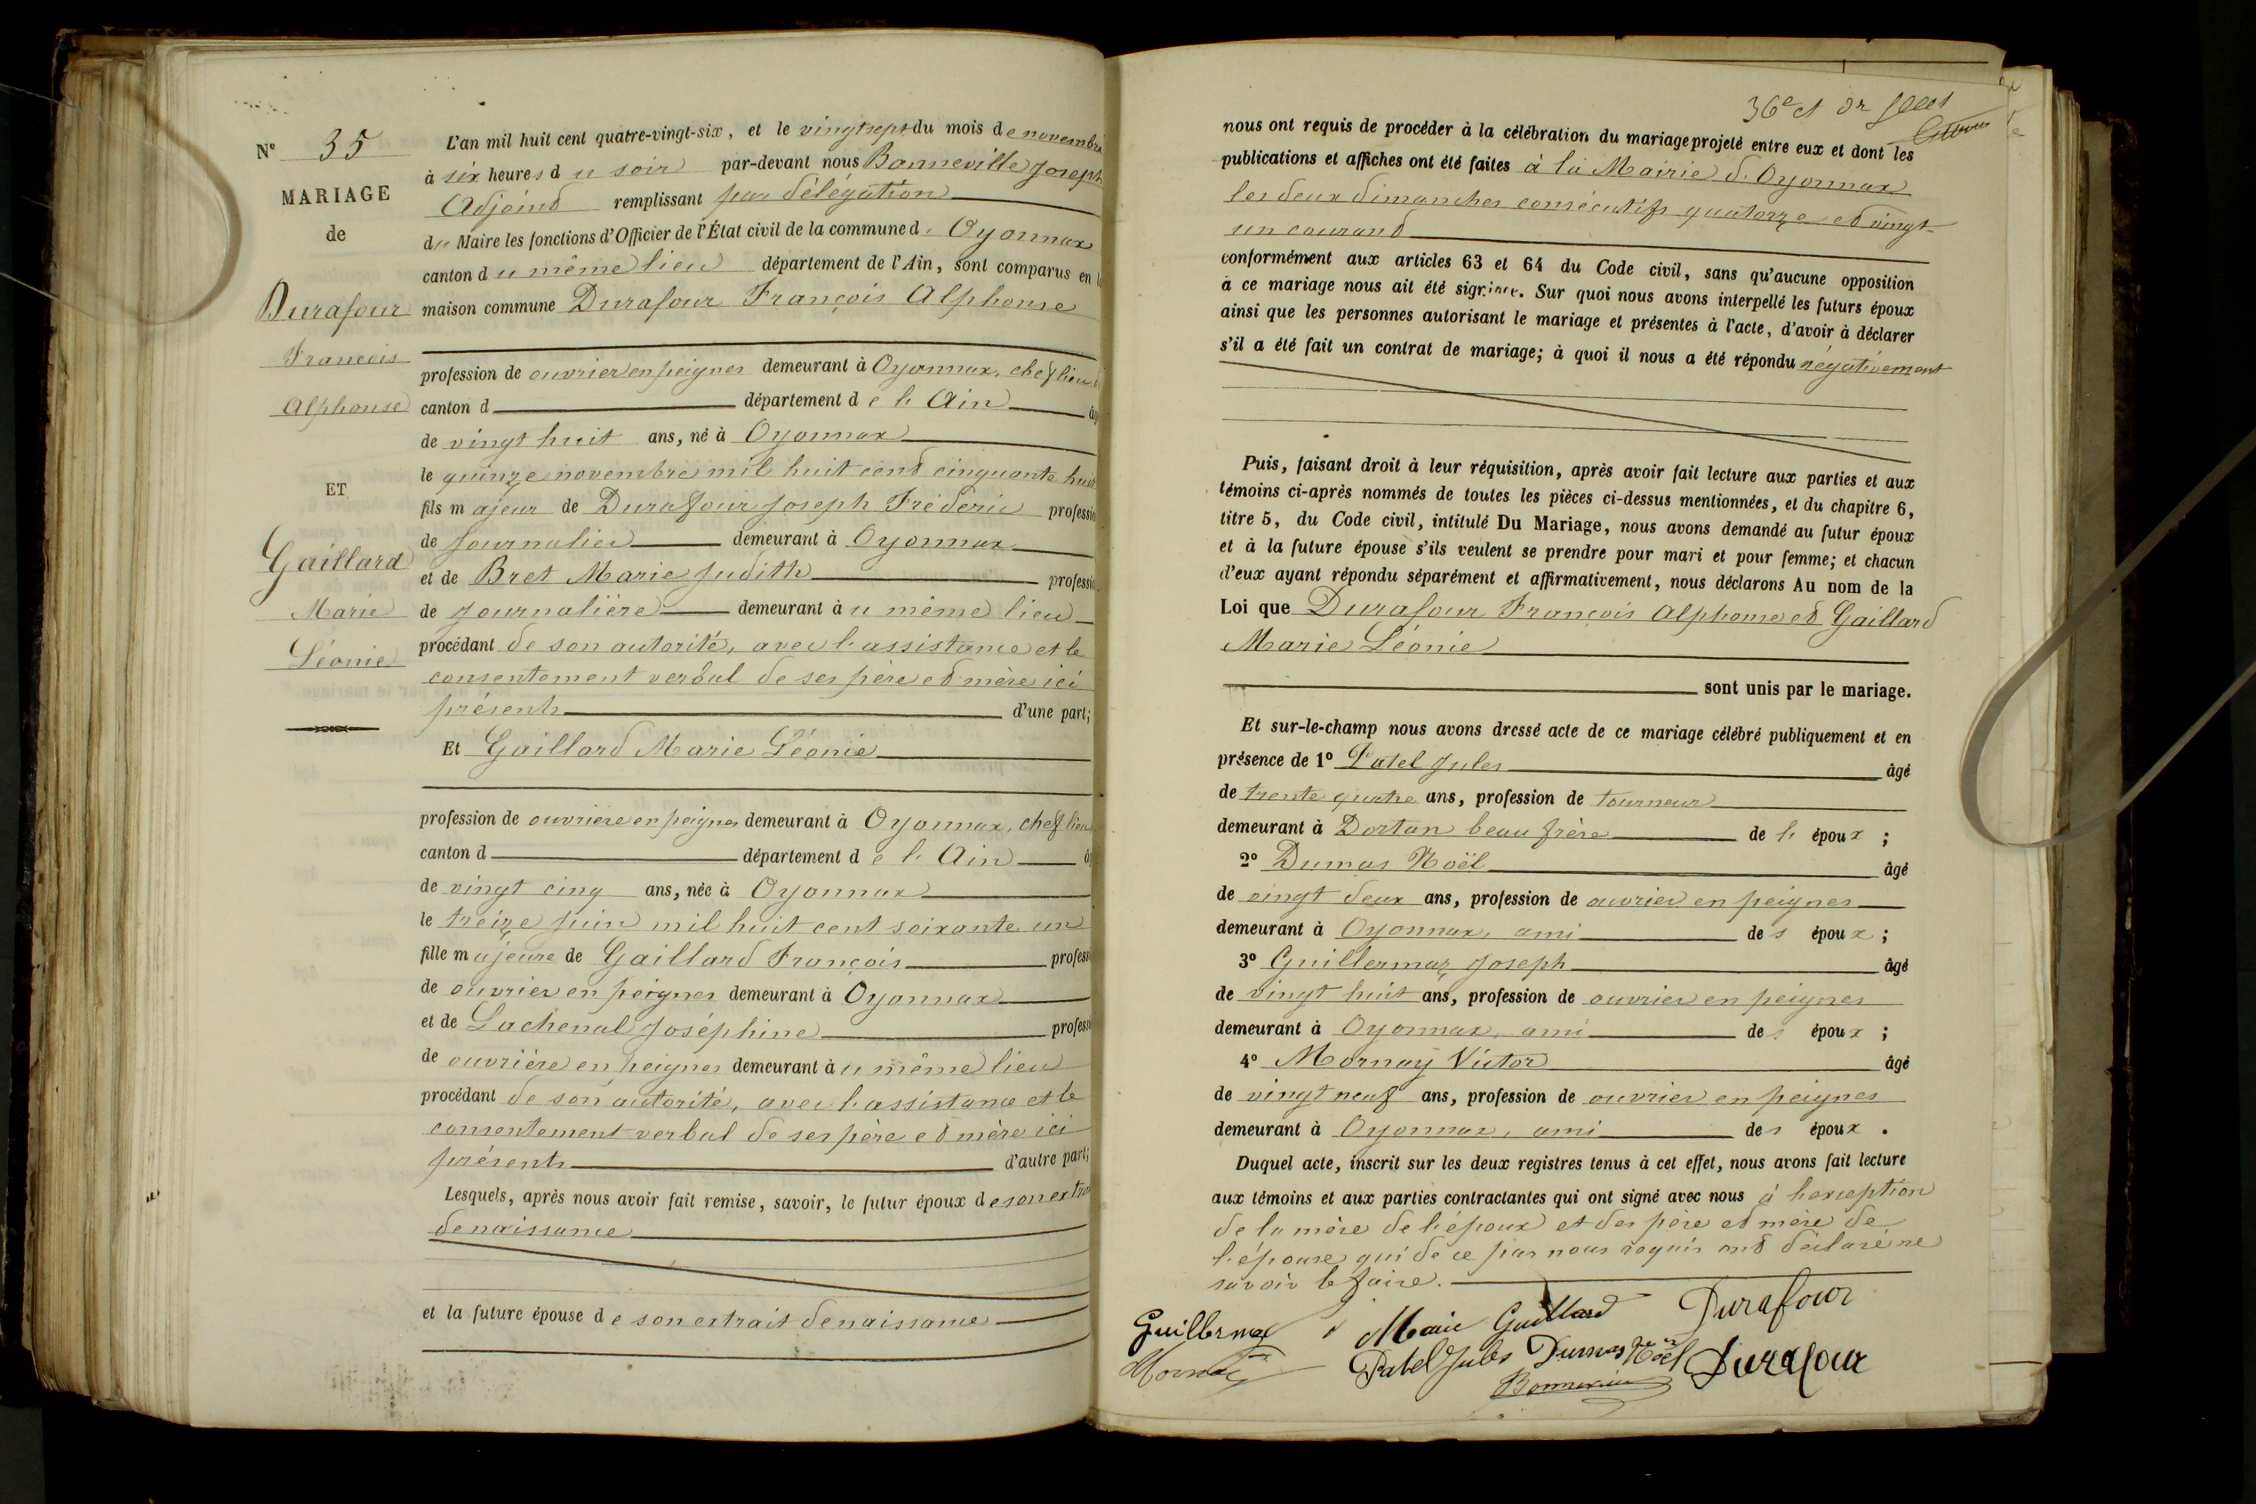 N° 35
MARIAGE
de
Durafour
François
Alphonse
ET
Gaillard
Marie
Léonie
L'an mil huit cent quatre-vingt-six, et le vingt sept du mois de novembre
à six heures du soir par-devant nous Bonneville Joseph
Adjoint remplissant par délégation
du Maire les fonctions d'Officier de l'État civil de la commune d' Oyonnax
canton du même lieu département de l'Ain, sont comparus en la
maison commune Durafour François Alphonse
profession de ouvrier en peignes demeurant à Oyonnax, chef lieu d
canton d département de l'Ain âg
de vingt huit ans, né à Oyonnax
le quinze novembre mil huit cent cinquante huit
fils majeur de Durafour Joseph Fréderic professio
de journalier demeurant à Oyonnax
et de Bret Marie Judith professio
de journalière demeurant au même lieu
procédant de son autorité, avec l'assistance et le
consentement verbal de ses père et mère ici
présents d'une part;
Et Gaillard Marie Léonie
profession de ouvrière en peignes demeurant à Oyonnax, chef lieu
canton d département de l'Ain â
de vingt cinq ans, née à Oyonnax
le treize juin mil huit cent soixante un
fille majeure de Gaillard François profess
de ouvrier en peignes demeurant à Oyonnax
et de Lachenal Joséphine profess
de ouvrière en peignes demeurant au même lieu
procédant de son autorité, avec l'assistance et le
consentement verbal de ses père et mère ici
présents d'autre part;
Lesquels, après nous avoir fait remise, savoir, le futur époux de son extrai
de naissance
et la future épouse de son extrait de naissance
36e et dr
nous ont requis de procéder à la célébration du mariage projeté entre eux et dont les
publications et affiches ont été faites à la Mairie d'Oyonnax
les deux dimanches consécutifs quatorze et vingt
un courant
conformément aux articles 63 et 64 du Code civil, sans qu'aucune opposition
à ce mariage nous ait été signifiée. Sur quoi nous avons interpellé les futurs époux
ainsi que les personnes autorisant le mariage et présentes à l'acte, d'avoir à déclarer
s'il a été fait un contrat de mariage; à quoi il nous a été répondu négativement
Puis, faisant droit à leur réquisition, après avoir fait lecture aux parties et aux
témoins ci-après nommés de toutes les pièces ci-dessus mentionnées, et du chapitre 6,
titre 5, du Code civil, intitulé Du Mariage, nous avons demandé au futur époux
et à la future épouse s'ils veulent se prendre pour mari et pour femme; et chacun
d'eux ayant répondu séparément et affirmativement, nous déclarons Au nom de la
Loi que Durafour François Alphonse et Gaillard
Marie Léonie
sont unis par le mariage.
Et sur-le-champ nous avons dressé acte de ce mariage célébré publiquement et en
présence de 1° Patel Jules âgé
de trente quatre ans, profession de tourneur
demeurant à Dortan beau frère de l' époux ;
2° Dumas Noël âgé
de vingt deux ans, profession de ouvrier en peignes
demeurant à Oyonnax, ami des époux ;
3° Guillermaz Joseph âgé
de vingt huit ans, profession de ouvrier en peignes
demeurant à Oyonnax, ami des époux ;
4° Mornay Victor âgé
de vingt neuf ans, profession de ouvrier en peignes
demeurant à Oyonnax, ami des époux .
Duquel acte, inscrit sur les deux registres tenus à cet effet, nous avons fait lecture
aux témoins et aux parties contractantes qui ont signé avec nous à l'exception
de la mère de l'époux et des père et mère de
l'épouse qui de ce par nous requis ont déclaré ne
savoir le faire.
Guillermaz Marie Gaillard Durafour
Mornay Patel Jules Dumas Noël Durafour
Bonneville